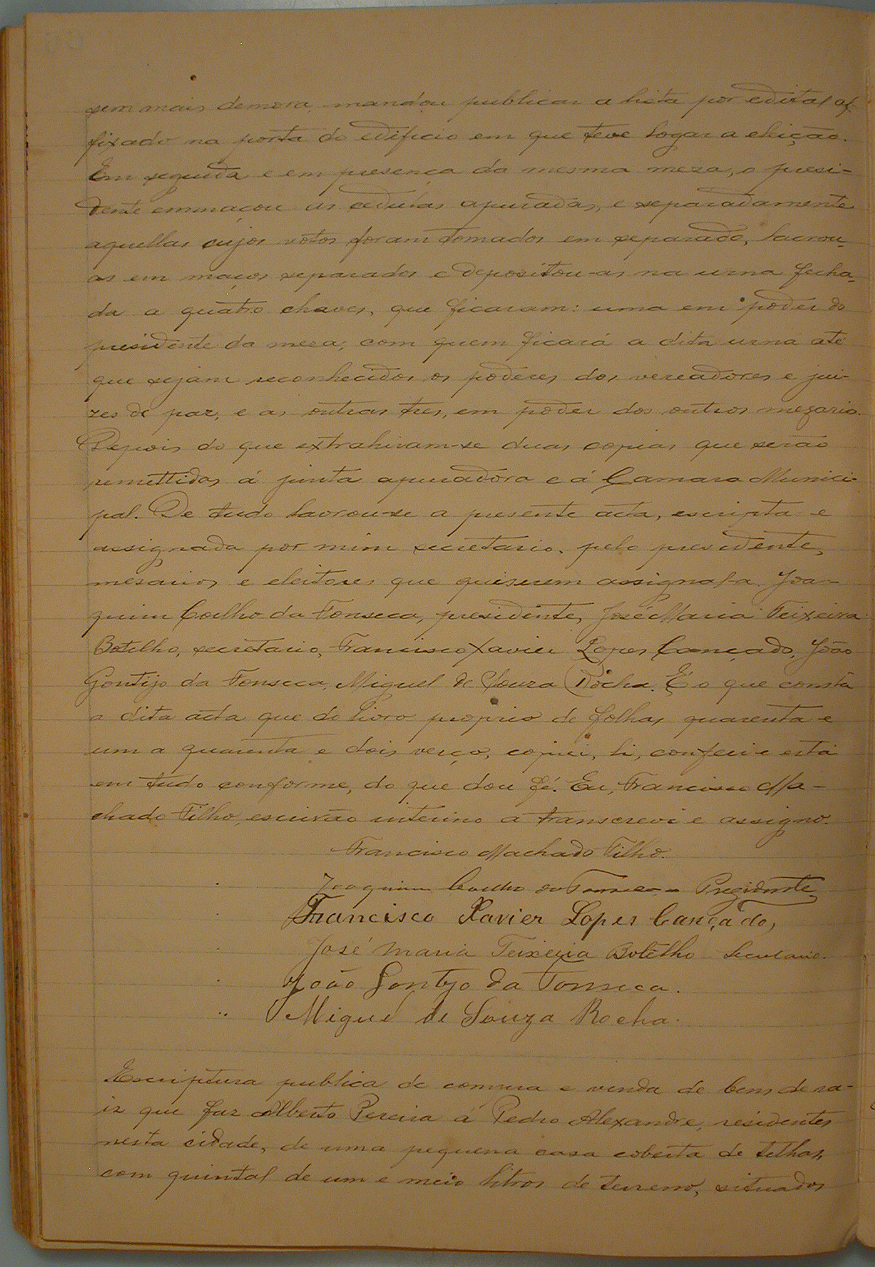 sem mais demora mandou publicar a lista por edital af-
fixado na porta do edificio em que teve logar a eleição.
Em seguida e em presença da mesma meza, o presi-
dente emmaçou as cedulas apuradas, e separadamente
aquellas cujos votos foram tomados em separado, lacrou-
as em maços separados e depositou-as na urna fecha-
da a quatro chaves, que ficaram: uma em poder do
presidente da meza, com quem ficará a dita urna até
que sejam reconhecidos os poderes dos vereadores e jui-
zes de paz, e as outras tres, em poder dos outros mezarios.
Depois do que extrahiram-se duas copias que serão
remettidas á junta apuradora e á Camara Munici-
pal. De tudo lavrou-se a presente acta, escripta e
assignada por mim secretario, pelo presidente,
mesarios e eleitores que quiserem assignal-a. Joa-
quim Coelho da Fonseca, presidente, José Maria Teixeira
Botelho, secretario, Francisco Xavier Lopes Cançado, João
Gontijo da Fonseca, Miguel de Souza Rocha. É o que consta
a dita acta que do livro proprio de folhas quarenta e
um a quarenta e dois verço, copiei, li, conferi e está
em tudo conforme, do que dou fé. Eu, Francisco Ma-
chado Filho, escrivão interino a transcrevi e assigno.
Francisco Machado Filho.
Joaquim Coelho da Fonseca Prezidente
Francisco Xavier Lopes Cançado,
José Maria Teixeira Botelho Secretario.
João Gontijo da Fonseca.
Miguel de Souza Rocha.
Escriptura publica de compra e venda de bens de ra-
iz que faz Alberto Pereira á Pedro Alexandre, residentes
nesta cidade, de uma pequena casa coberta de telhas,
com quintal de um e meio litros de terreno, situados